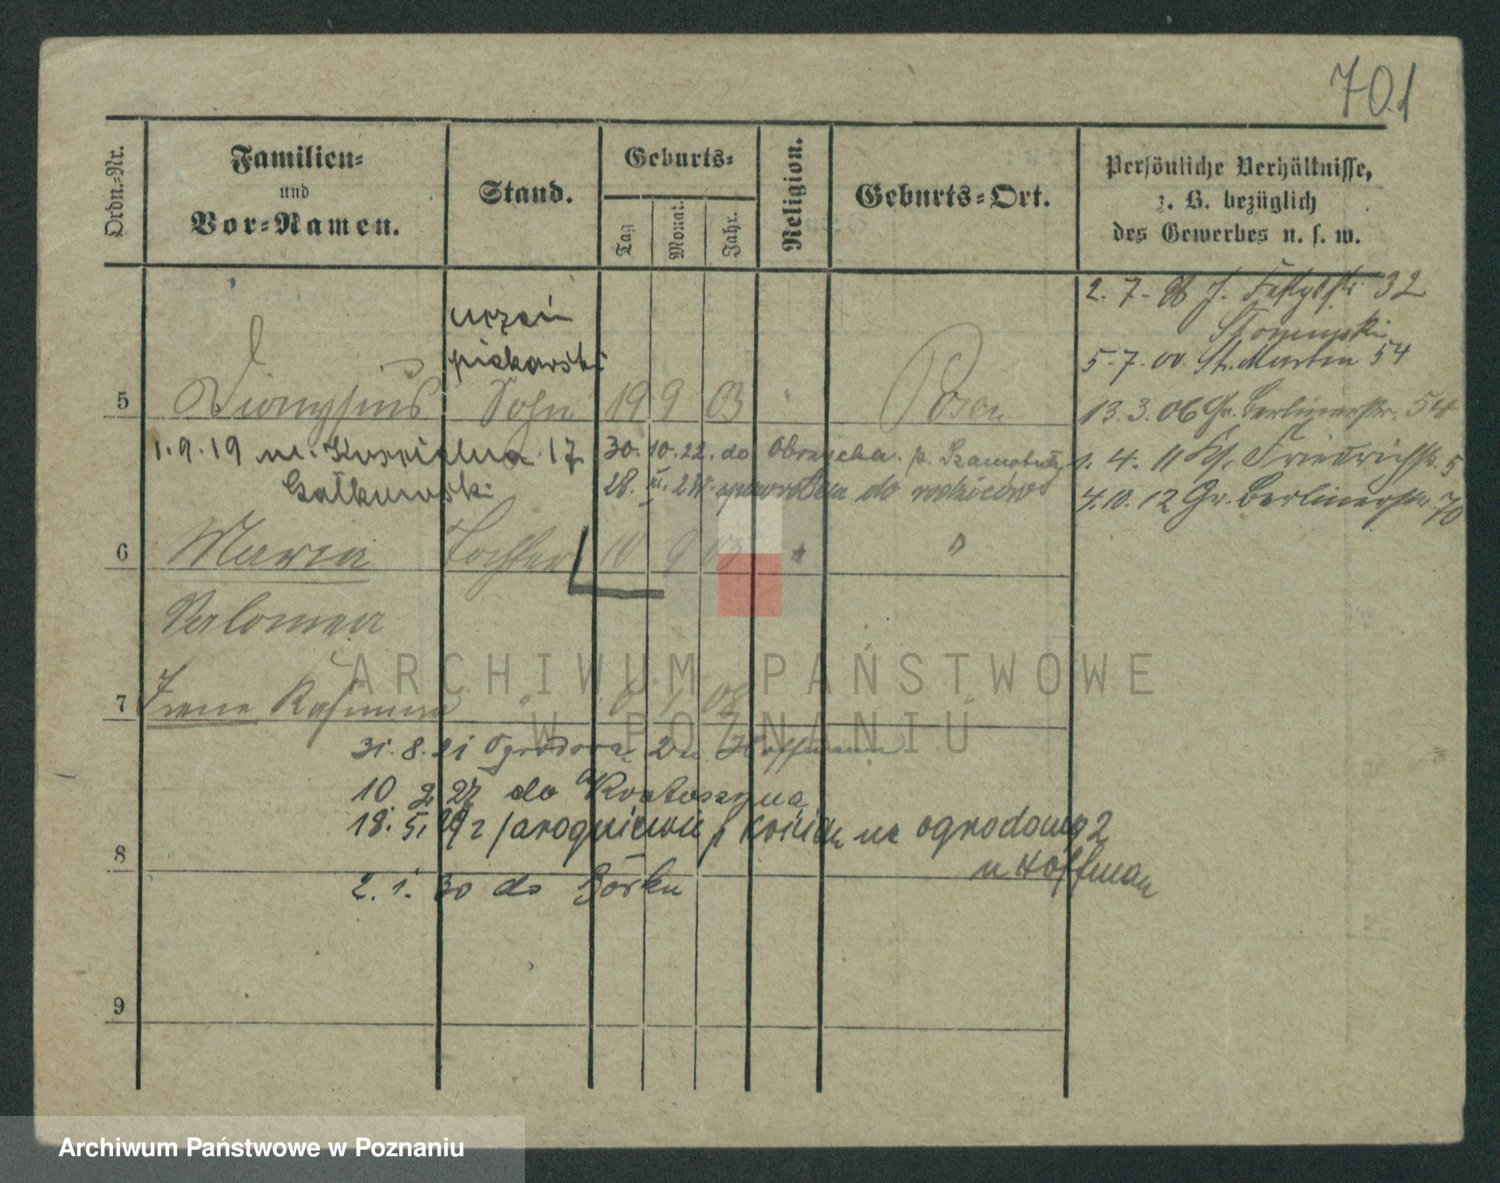 701
Ordn.-Nr.
Familien-
und
Vor-Namen.
Stand.
Geburts-
Tag
Monat.
Jahr.
Religion.
Geburts-Ort.
Persönliche Verhältnisse,
z. B. bezüglich
des Gewerbes u. s. w.
2. 7. 32
uczeń
piekarski
5. 7. 00. St. Martin 54
5 Dionysius Sohn 19 9 03 " Posen
13. 3. 06 Gr. Berlinerstr. 54
1. 9. 19 17
30. 10. 22. do Obrzycka p. Szamotuły
1. 4. 11 Friedrichstr. 5
Gałkowski
28. do rodziców
4. 10. 12 Gr. Berlinerstr. 70
6 Maria Tochter 10 9 " "
Salomea
7 Irene " 08 "
31. 8. 21 Ogrodowa Hoffmann
10 2 27 do Krotoszyna
18. 5. 29 z Kościan na ogrodową 2
8
u Hoffman
2. 1. 30 do Borku
9
ARCHIWUM PAŃSTWOWE
W POZNANIU
Archiwum Państwowe w Poznaniu